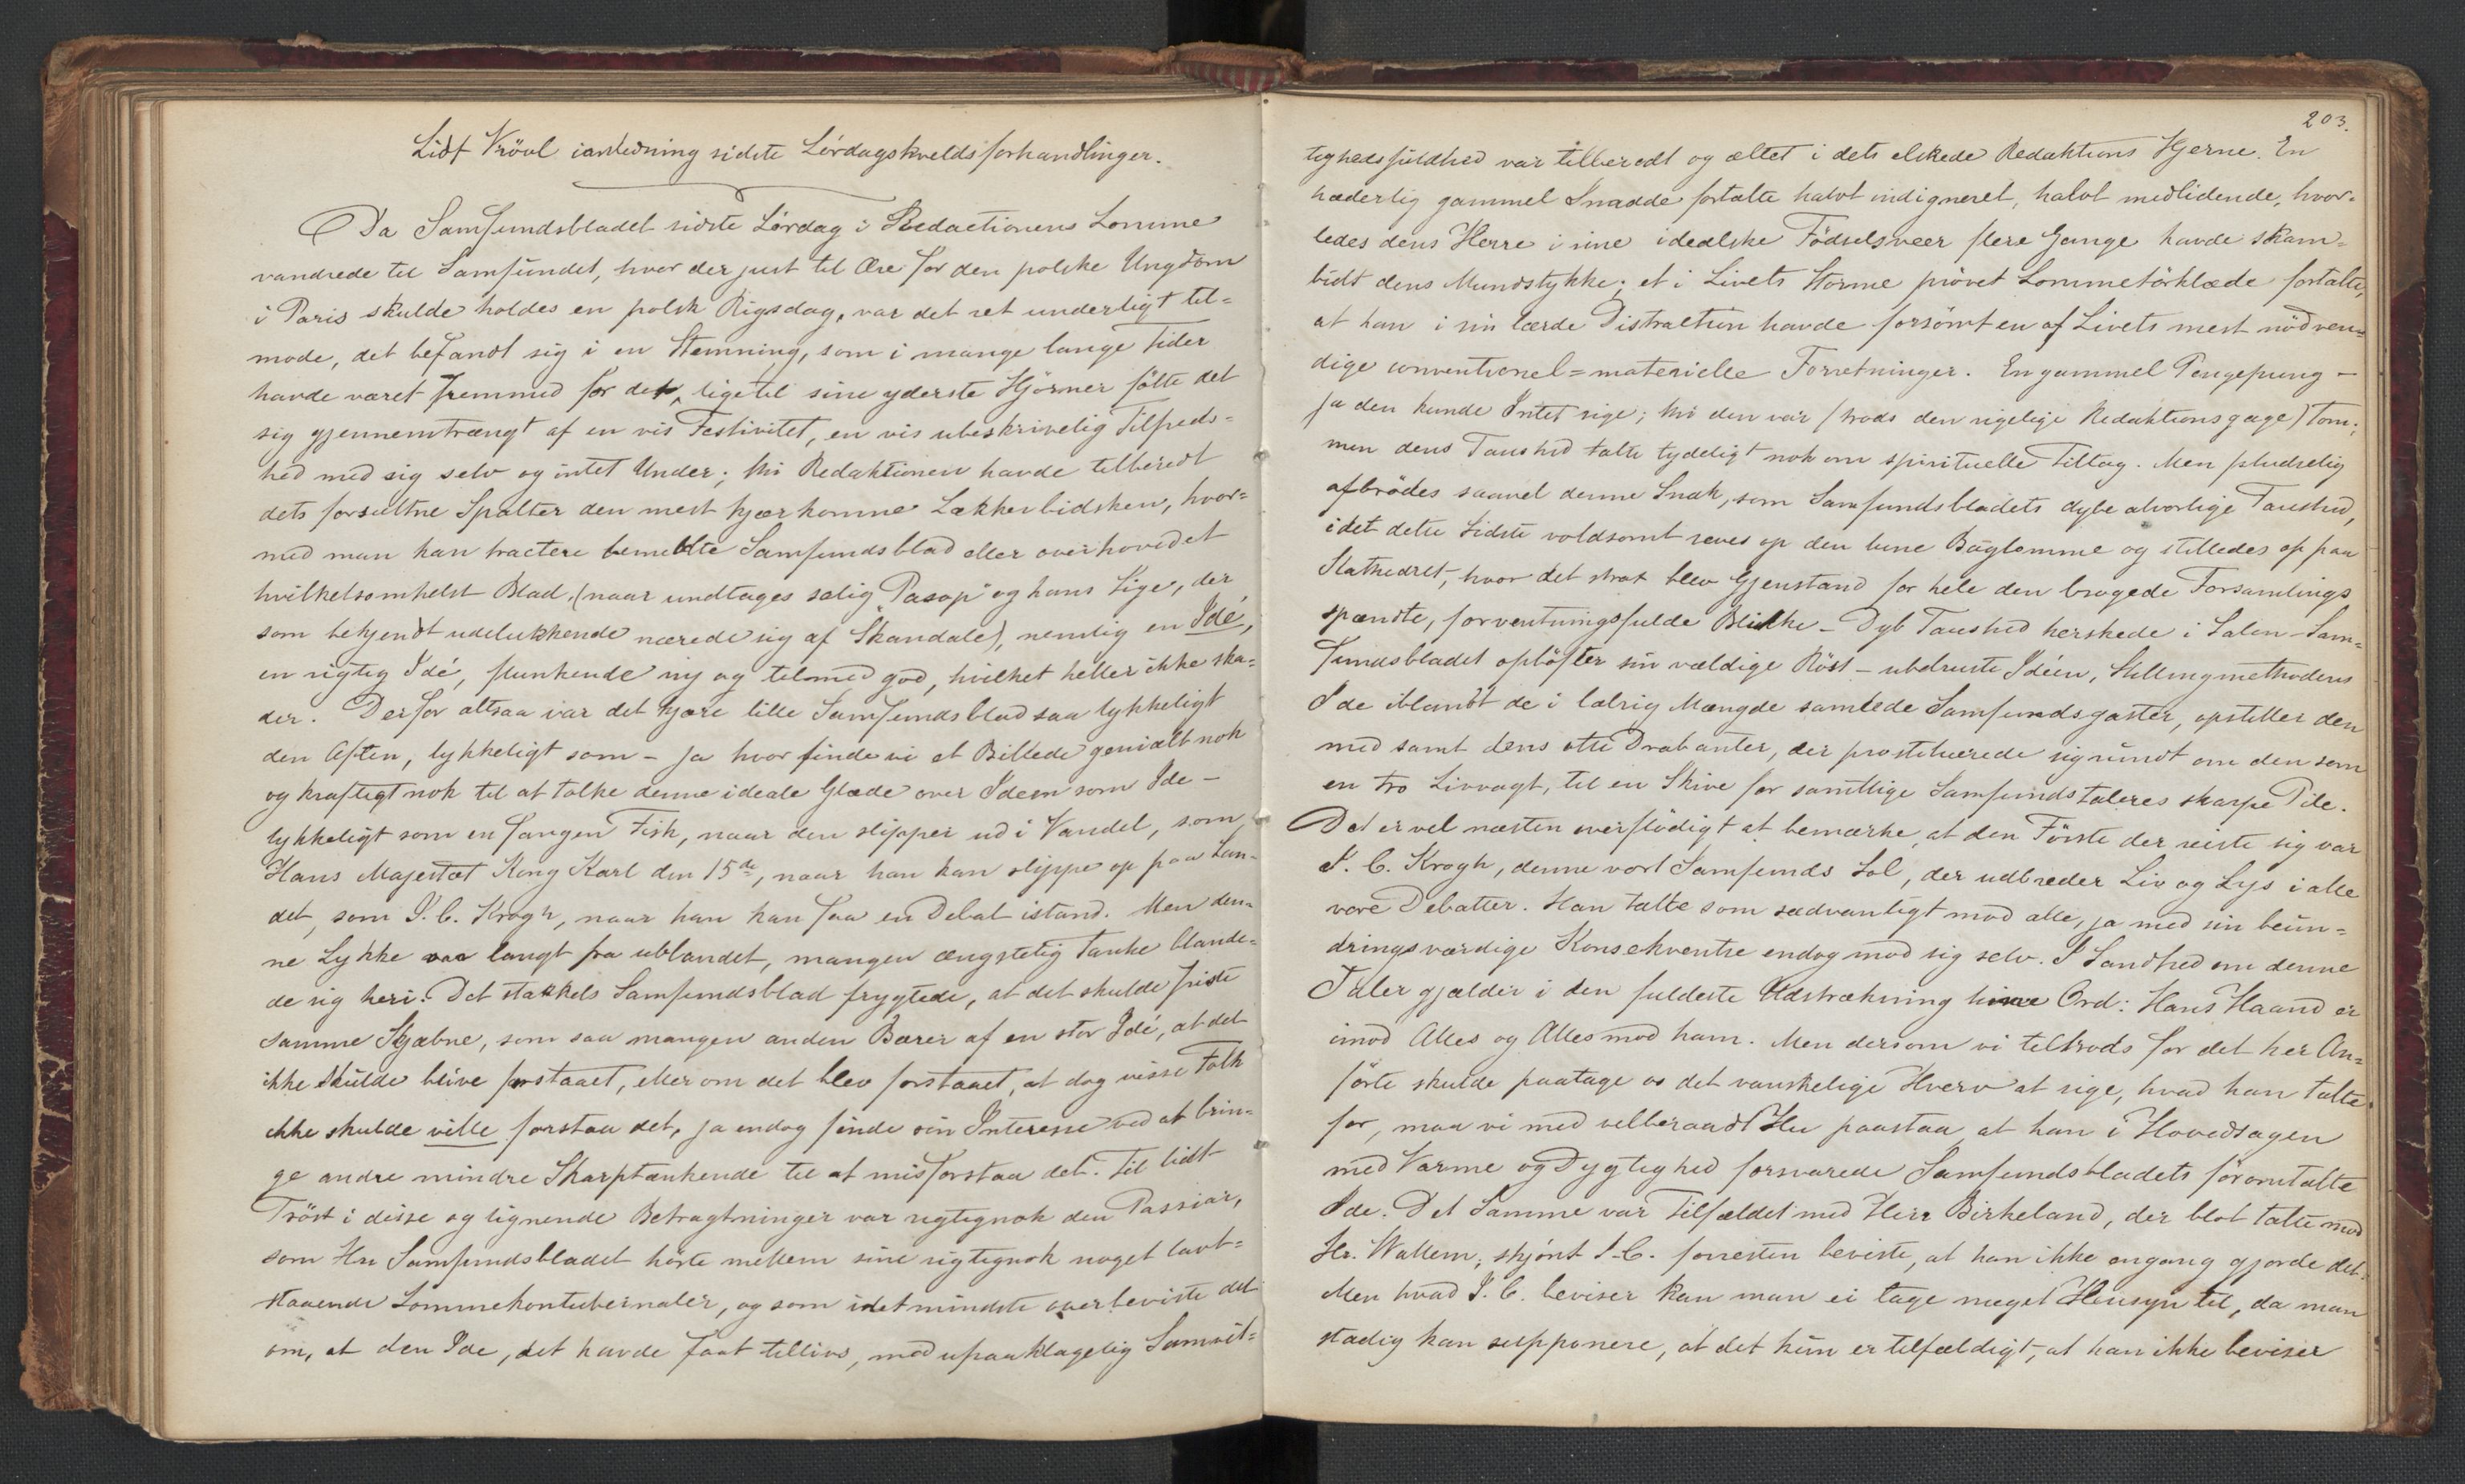 Lidt Vrövl ianledning sidste Lördagskveldsforhandlinger.
Da Samfundsbladet sidste Lördag i Redactionens Lomme
vandrede til Samfundet, hvor der just til Ære for den polske Ungdom
i Paris skulde holdes en polsk Rigsdag, var det ret underligt til=
mode, det befandt sig i en Stemning, som i mange lange Tider
havde været fremmed for det, ligetil sine yderste Hjörner fölte det
sig gjennemtrængt af en vis Festivitet, en vis ubeskrivelig Tilfreds=
hed med sig selv og intet Under; thi Redaktionen havde tilberedt
dets forsultne Spalter den mest kjærkomne Lækkerbidsken, hvor=
med man kan tractere bemeldte Samfundsblad eller overhovedet
hvilketsomhelst Blad, (naar undtages salig "Pasop" og hans Lige, der
som bekjendt udelukkende nærede sig af Skandale), nemlig en Idé,
en rigtig Idé, flunkende ny og tilmed god, hvilket heller ikke ska=
der. Derfor altsaa var det kjære lille Samfundsblad saa lykkeligt
den Aften, lykkeligt som - ja hvor finde vi et Billede genialt nok
og kraftigt nok til at tolke denne ideale Glæde over Ideen som Ide -
lykkeligt som en fangen Fisk, naar den slipper ud i Vandet, som
Hans Majestæt Kong Karl den 15de, naar han kan slippe op paa Lan=
det, som J. C. Krogh, naar han kan faa en Debat istand. Men den=
ne Lykke var langt fra ublandet, mangen ængstelig Tanke blande=
de sig heri. Det stakkels Samfundsblad frygtede, at det skulde friste
samme Skjæbne, som saa mangen anden Bærer af en stor Idé, at det
ikke skulde blive forstaaet, eller om det blev forstaaet, at dog visse Folk
ikke skulde ville forstaa det, ja endog finde sin Interesse ved at brin=
ge andre mindre Skarptænkende til at misforstaa det. Til lidt
Tröst i disse og lignende Betragtninger var rigtignok den Passiar,
som Hr Samfundsbladet hörte mellem sine rigtignok noget lavt=
staaende Lommekontubernaler, og som idetmindste overbeviste det
om, at den Ide, det havde faat tillivs, med upaaklagelig Samvit=
203.
tighedsfuldhed var tilberedt og æltet i dets elskede Redaktions Hjerne. En
hæderlig gammel Snadde fortalte halvt indigneret, halvt medlidende, hvor=
ledes dens Herre i sine idealske Födselsveer flere Gange havde skam=
bidt dens Mundstykke; et i Livets Storme prövet Lommetörklæde fortalte,
at han i sin lærde Distraction havde forsömt en af Livets mest nödven=
dige conventionel=materielle Forretninger. En gammel Pengepung -
ja den kunde Intet sige; thi den var (trods den rigelige Redaktionsgage) tom;
men dens Taushed talte tydeligt nok om spirituelle Tiltag. Men pludselig
afbrödes saavel denne Snak, som Samfundsbladets dybe alvorlige Taushed,
idet dette Sidste voldsomt reves op den lune Baglomme og stilledes op paa
Kathedret, hvor det strax blev Gjenstand for hele den brogede Forsamlings
spændte, forventningsfulde Blikke - Dyb Taushed herskede i Salen - Sam=
fundsbladet oplöfter sin vældige Röst - udslynger Idéen, Stillingmethodens
Ide iblandt de i talrig Mængde samlede Samfundsgaster, opstiller den
med samt dens otte Drabanter, der prostituerede sig rundt om den som
en tro Livvagt, til en Skive for samtlige Samfundstaleres skarpe Pile.
Det er vel næsten overflödigt at bemærke, at den Förste der reiste sig var
J. C. Krogh, denne vort Samfunds Sol, der udbreder Liv og Lys i alle
vore Debatter. Han talte som sædvanligt mod alle, ja med sin beun=
dringsværdige Konsekventse endog mod sig selv. I Sandhed om denne
Taler gjælder i den fuldeste Udstrækning hine Ord: Hans Haand er
imod Alles og Alles mod ham. Men dersom vi tiltrods for det her An=
förte skulde paatage os det vanskelige Hverv at sige, hvad han talte
for, maa vi med velberaadt Hu paastaa at han i Hovedsagen
med Varme og Dygtighed forsvarede Samfundsbladets föromtalte
Ide. Det Samme var Tilfældet med Herr Birkeland, der blot talte mod
Hr. Wallem; skjönt J.C. forresten beviste, at han ikke engang gjorde det.
Men hvad J. C. beviser kan man ei tage meget Hensyn til, da man
stadig kan supponere, at det kun er tilfældigt, at han ikke beviser